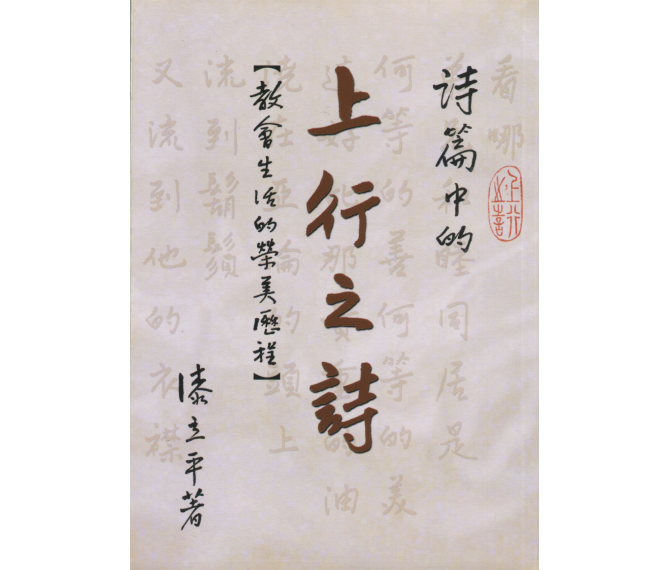 詩篇中的
上行之詩
【教會生活的榮美歷程】
漆立平著
看哪
弟兄和睦同居是
何等的善何等的美
這好比那貴重的油
澆在亞倫的頭上
流到鬍鬚
又流到他的衣襟